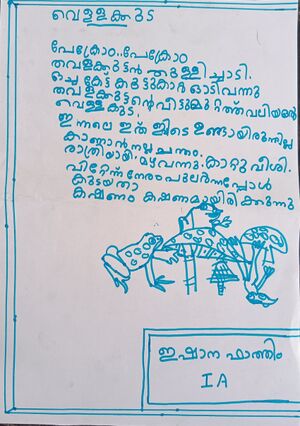 വെള്ളക്കുട
പേക്രോം..പേക്രോം
തവളക്കുട്ടൻ തുള്ളിച്ചാടി.
ഒച്ച കേട്ട് കൂട്ടുകാർ ഓടിവന്നു
തവളക്കുട്ടന്റെ വീട്ടുമുറ്റത്ത് വലിയൊരു
വെള്ളക്കുട.
ഇന്നലെ ഇത് ഇവിടെ ഉണ്ടായിരുന്നില്ല
കാണാൻ നല്ല ചന്തം.
രാത്രിയായി. മഴവന്നു. കാറ്റു വീശി.
പിറ്റേന്ന് നേരം പുലർന്നപ്പോൾ
കുടയതാ
കഷണം കഷണമായിരിക്കുന്നു
ഇഷാന ഫാത്തിം
I A